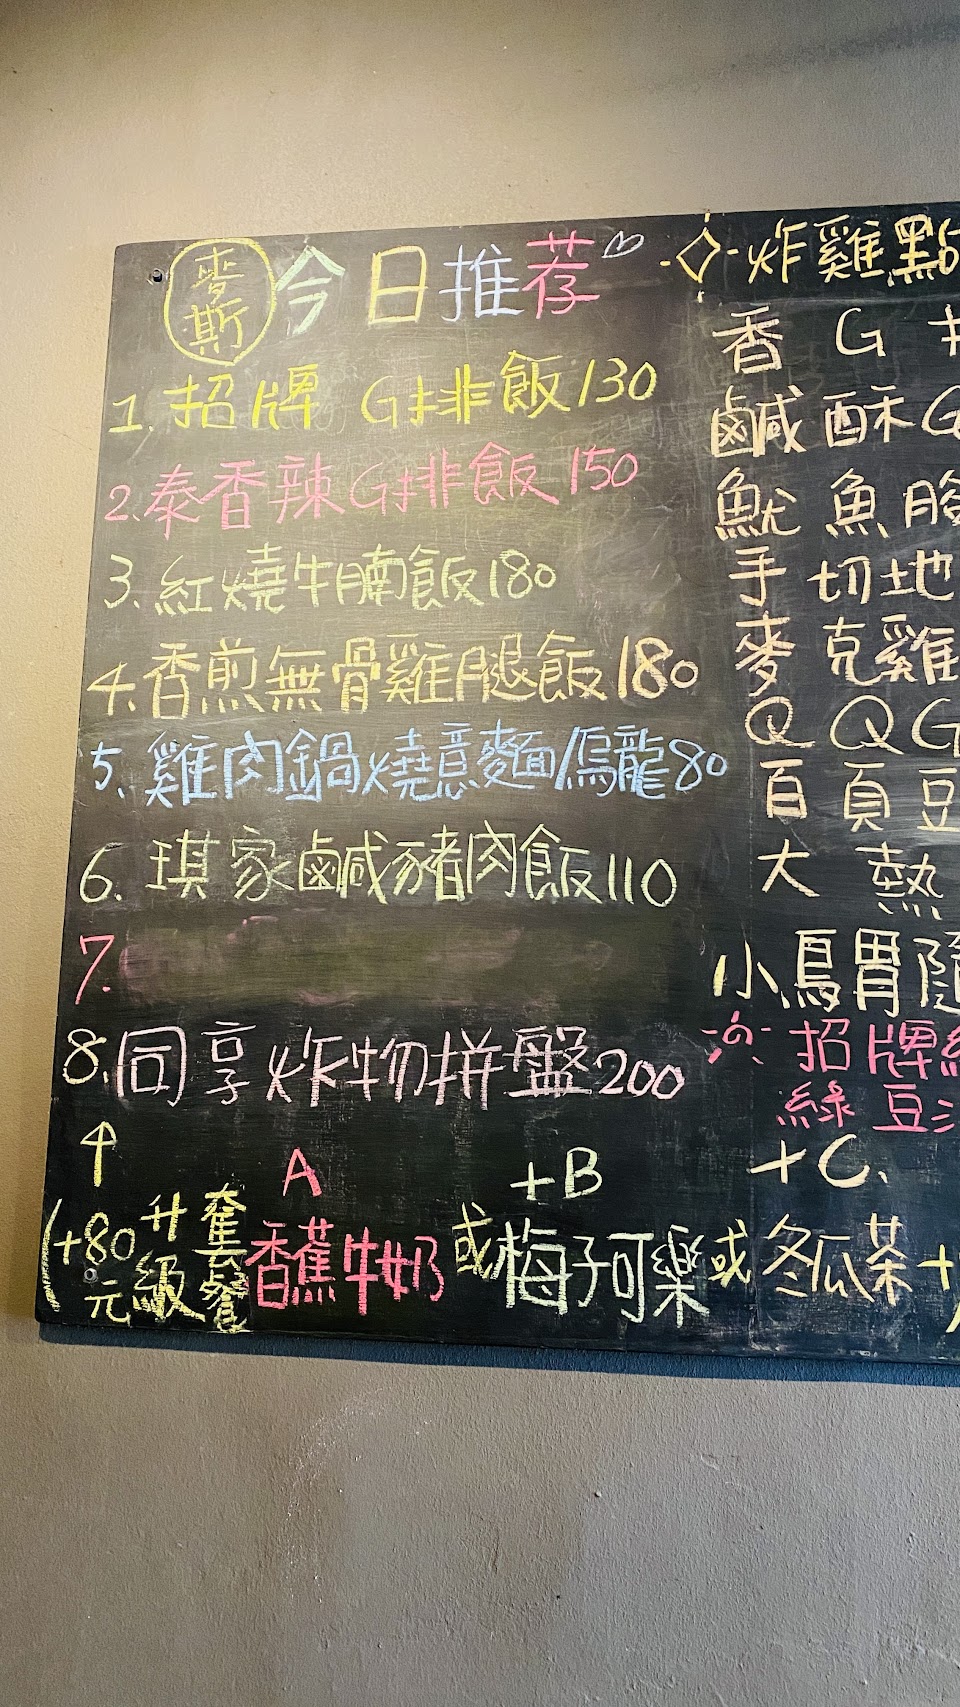 麥斯 今日推荐
1. 招牌 G排飯 130
2. 泰香辣G排飯 150
3. 紅燒牛腩飯180
4. 香煎無骨雞腿飯180
5、雞肉鍋燒意麵/烏龍80
6. 琪家鹹豬肉飯110
7.
8. 同享炸物拼盤200
(+80元 升級套餐
A
香蕉牛奶
+B
或梅子可樂
+C、
或冬瓜茶+
炸雞點
香 G
鹹酥G
魷魚
手切地
麥克雞
QQG
百頁豆
大熱
小鳥胃隨
招牌
綠豆